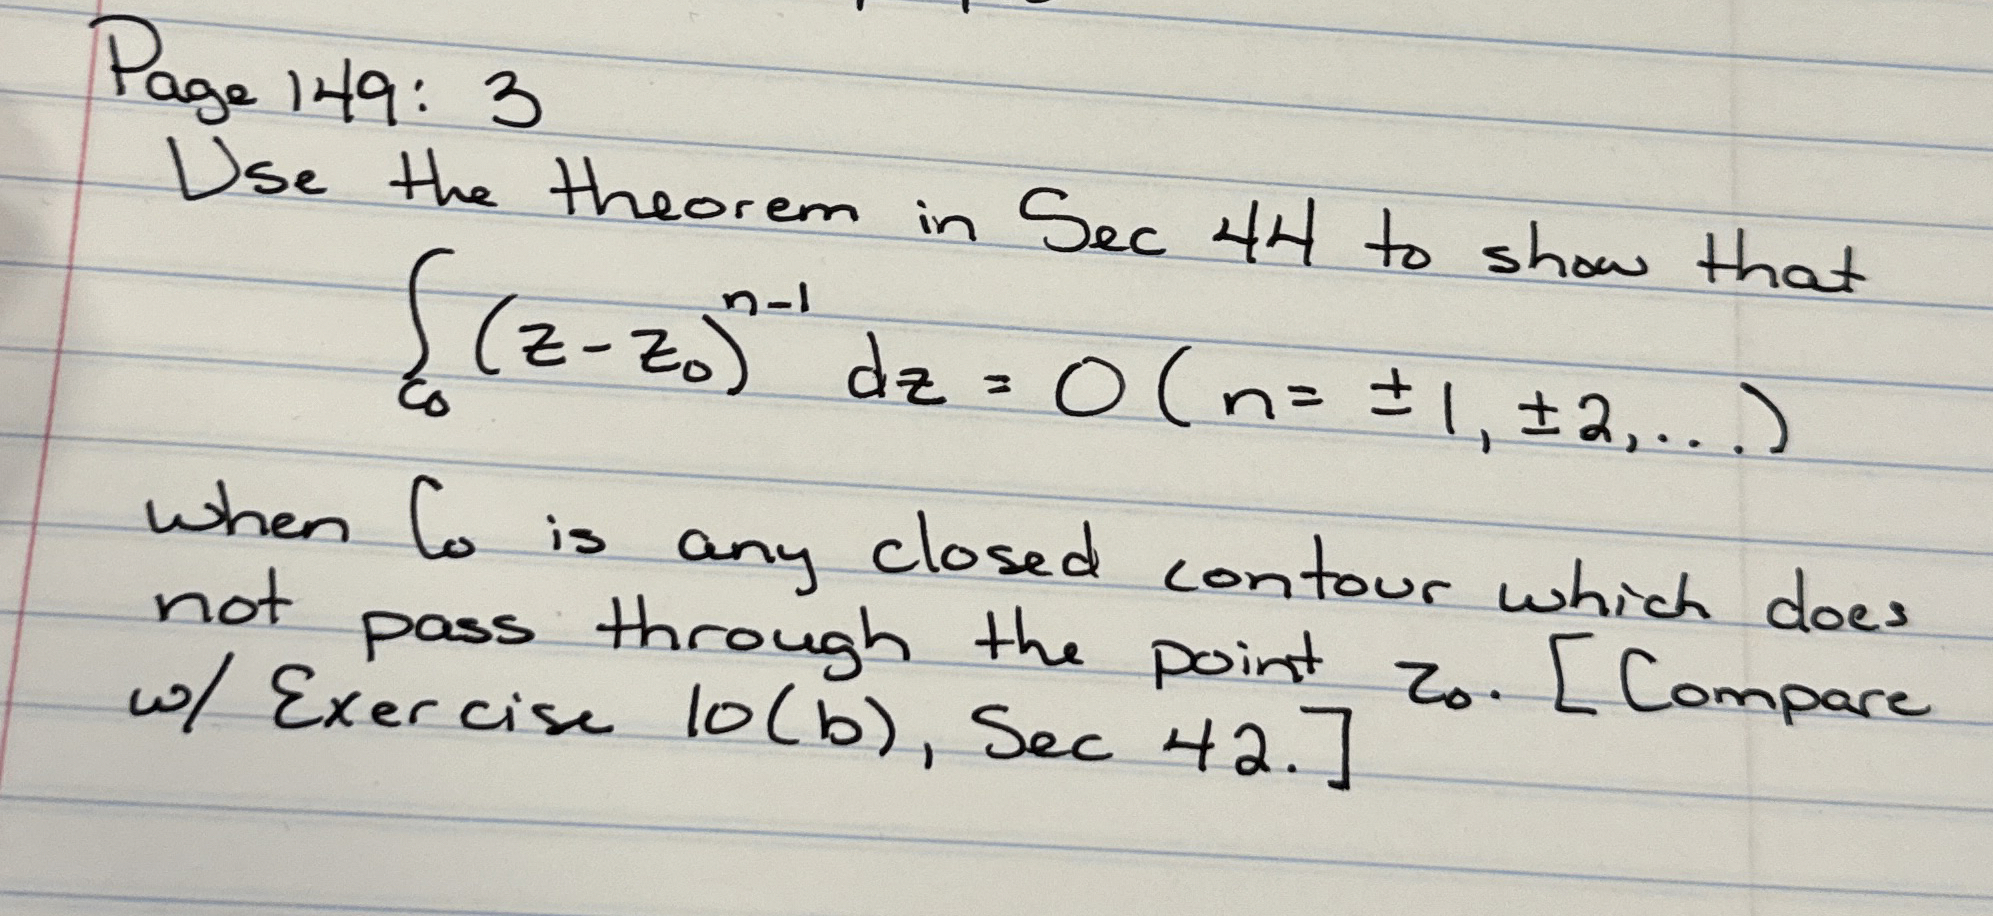 Page 149: 3
Use the theorem in Sec 44 to show that
∫_{C₀} (z-z₀)^{n-1} dz = 0 (n= ±1, ±2,...)
when C₀ is any closed contour which does
not pass through the point z₀. [Compare
w/ Exercise 10(b), Sec 42.]